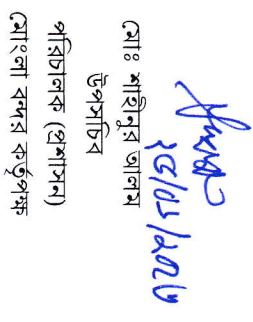 ২৫/০১/২০২৬
মোঃ শাহিনুর আলম
উপসচিব
পরিচালক (প্রশাসন)
মোংলা বন্দর কর্তৃপক্ষ